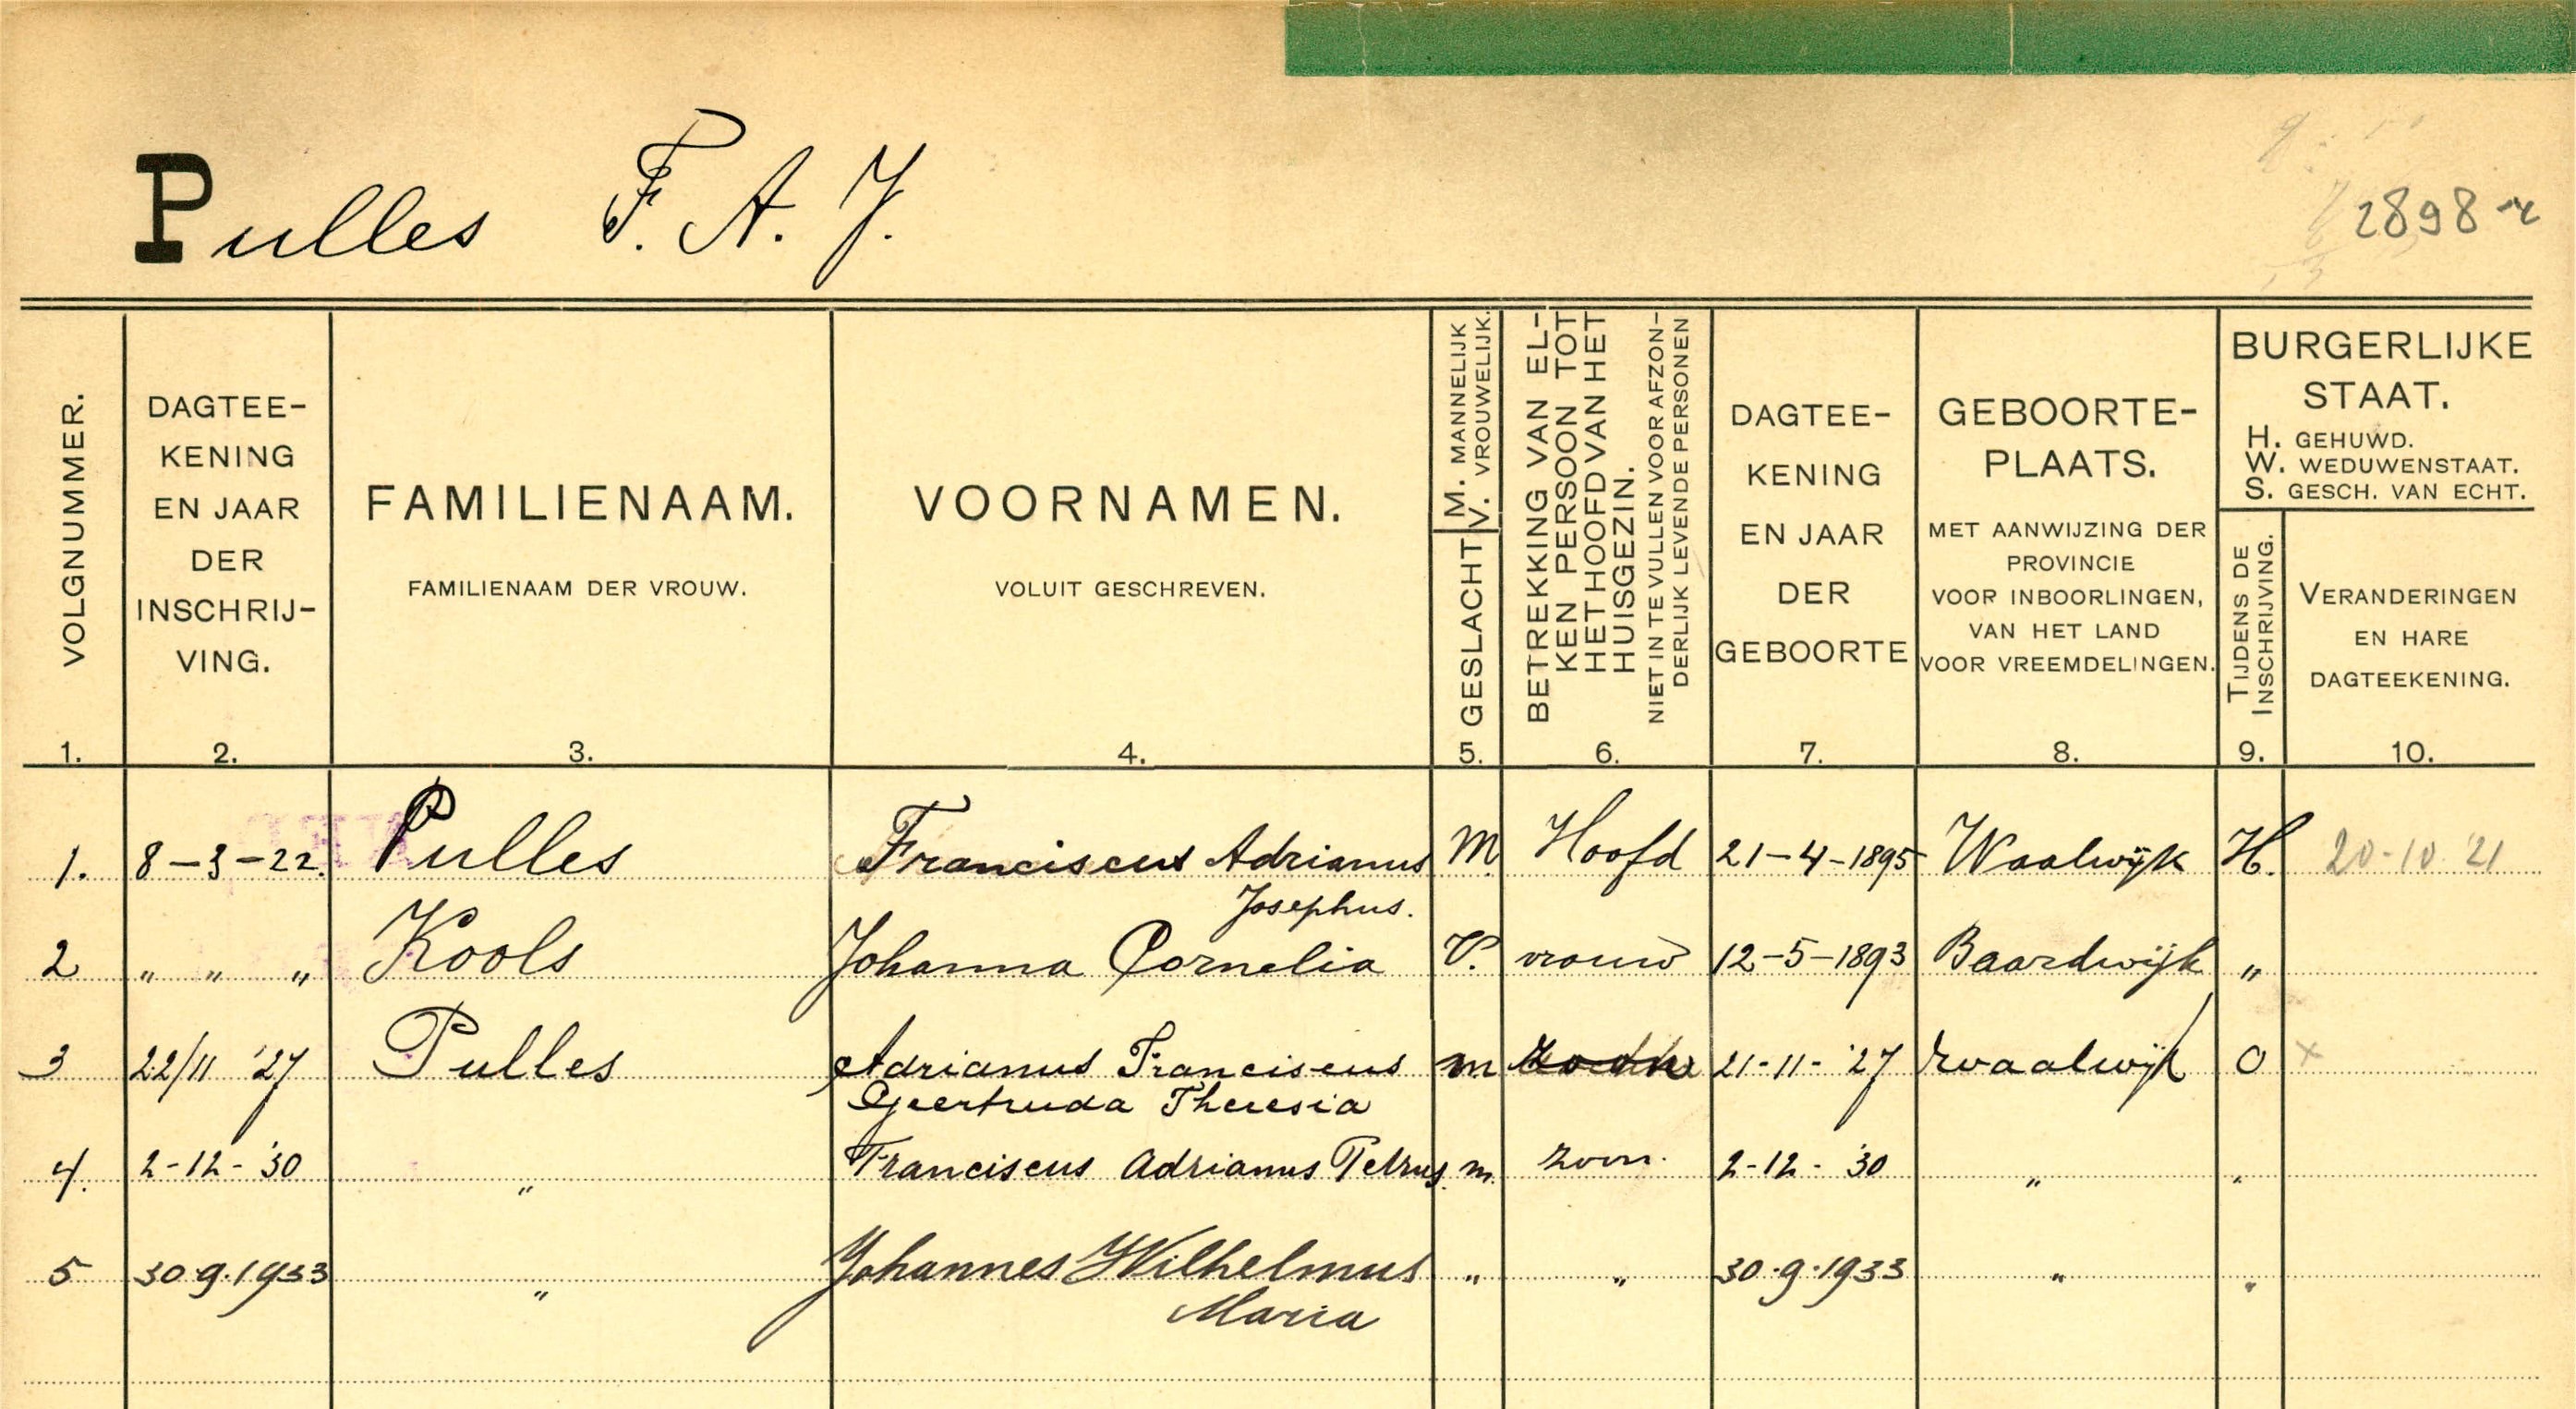 Pulles F. A. J.
2898
VOLGNUMMER.
1.
DAGTEE-
KENING
EN JAAR
DER
INSCHRIJ-
VING.
2.
FAMILIENAAM.
FAMILIENAAM DER VROUW.
3.
VOORNAMEN.
VOLUIT GESCHREVEN.
4.
M. MANNELIJK
V. VROUWELIJK.
GESLACHT
5.
BETREKKING VAN EL-
KEN PERSOON TOT
HET HOOFD VAN HET
HUISGEZIN.
NIET IN TE VULLEN VOOR AFZON-
DERLIJK LEVENDE PERSONEN
6.
DAGTEE-
KENING
EN JAAR
DER
GEBOORTE
7.
GEBOORTE-
PLAATS.
MET AANWIJZING DER
PROVINCIE
VOOR INBOORLINGEN,
VAN HET LAND
VOOR VREEMDELINGEN.
8.
BURGERLIJKE
STAAT.
H. GEHUWD.
W. WEDUWENSTAAT.
S. GESCH. VAN ECHT.
TIJDENS DE
INSCHRIJVING.
9.
VERANDERINGEN
EN HARE
DAGTEEKENING.
10.
1. 8-3-22. Pulles Franciscus Adrianus M. Hoofd 21-4-1895 Waalwijk H. 20-10 '21
Josephus.
2 " " " Kools Johanna Cornelia V. vrouw 12-5-1893 Baardwijk "
3 22/11 '27 Pulles Adrianus Franciscus m zoon 21-11-'27 Waalwijk O x
Geertruda Theresia
4. 2-12-'30 " Franciscus Adrianus Petrus m. zoon. 2-12-'30 " "
5 30.9.1933 " Johannes Wilhelmus " " 30.9.1933 " "
Maria